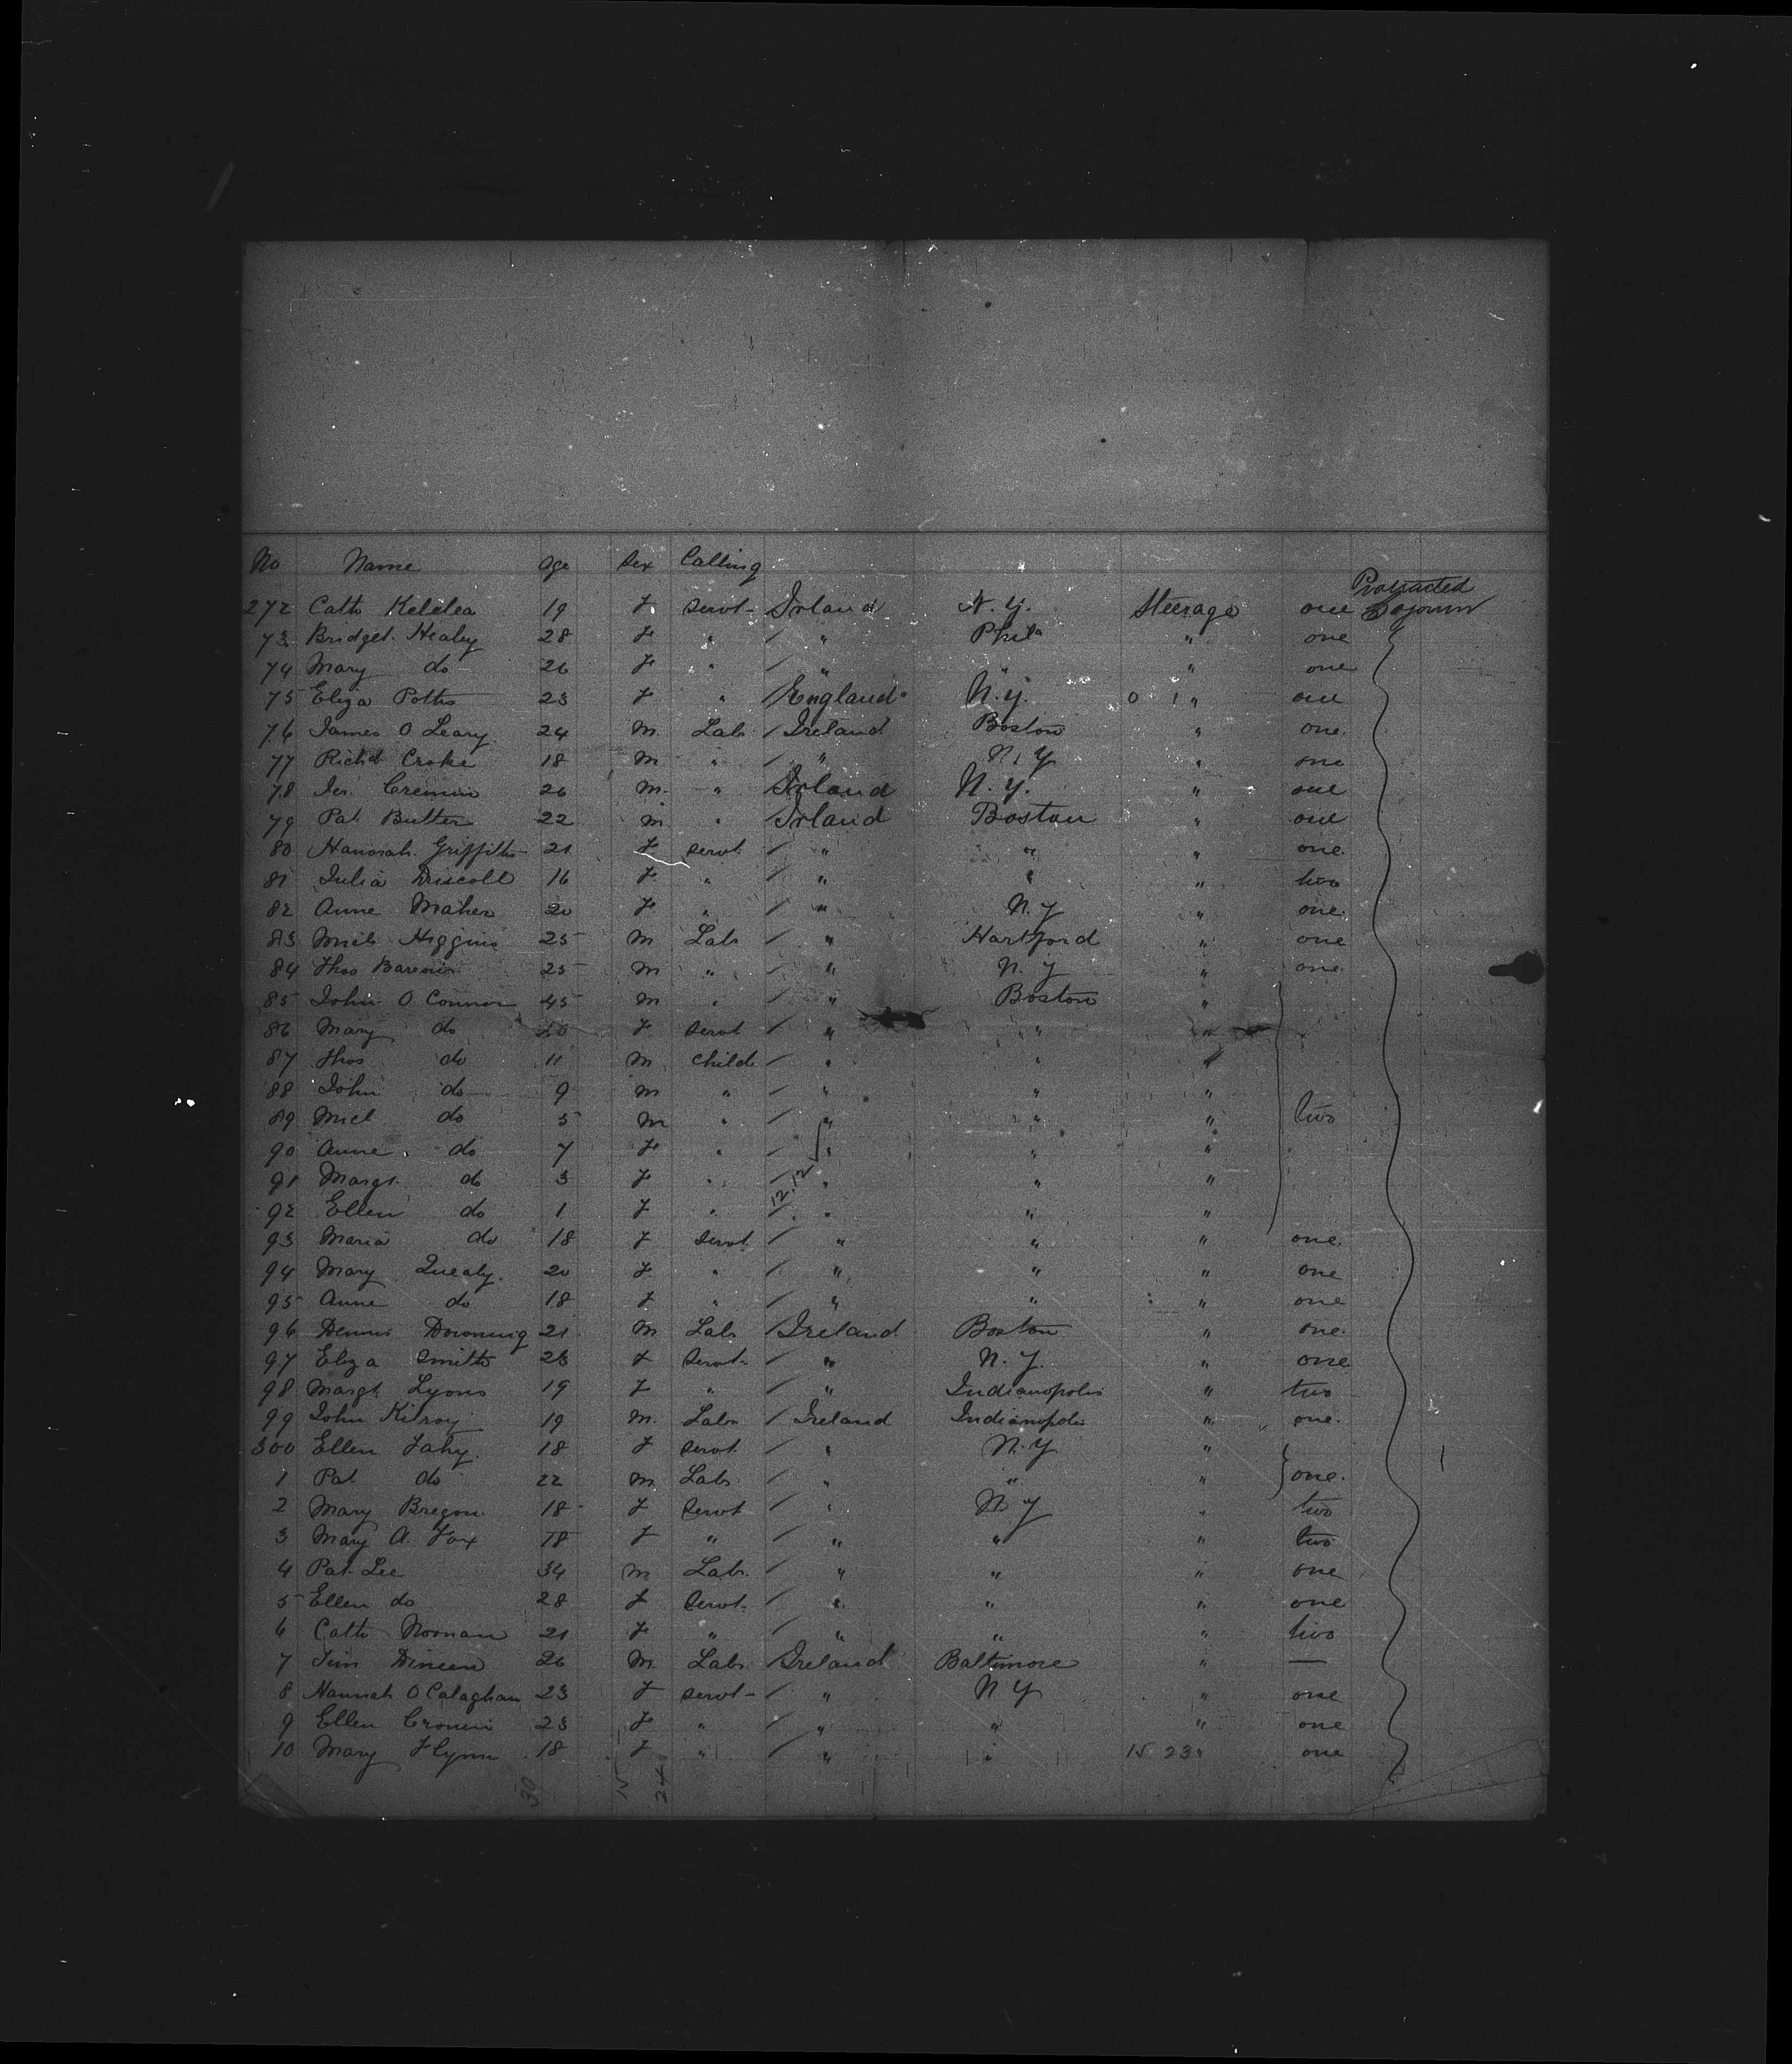 No Name Age Sex Calling
Protracted
272 Cath Kelelea 19 F servt Irland N.Y. Steerage one Sojourn
73 Bridget Healey 28 F " / " Phila " one
74 Mary do 26 F " / " " " one
75 Eliza Potts 23 F " / England N.Y. 0 1 " one
76 James O Leary 24 M Labr / Ireland Boston " one
77 Richd Croke 18 M " / " N.Y " one
78 Jer. Cremin 26 M " Irland N.Y. " one
79 Pat Butter 22 M " Irland Boston " one
80 Hanorah Griffiths 21 F servt / " " " one
81 Julia Driscoll 16 F " / " " " two
82 Anne Maher 20 F " / " N.Y " one
83 Mich Higgins 25 M Labr / " Hartford " one
84 Thos 25 M " / " N.Y " one
85 John O Connor 45 M " / " Boston "
86 Mary do F servt / " " "
87 Thos do 11 M child / " " "
88 John do 9 M " / " " "
89 Micl do 5 M " / " " " two
90 Anne do 7 F " / " " "
91 Margt do 3 F " / " " "
12.12
92 Ellen do 1 F " / " " "
93 Maria do 18 F servt / " " " one
94 Mary Quealy 20 F " / " " " one
95 Anne do 18 F " / " " " one
96 Dennis Downing 21 M Labr / Ireland Boston " one
97 Eliza Smith 23 F servt / " N.Y. " one
98 Margt Lyons 19 F " / " Indianopolis " two
99 John Kilroy 19 M Labr / Ireland Indianopolis " one
300 Ellen Fahy 18 F servt / " N.Y "
1 Pat do 22 M Labr / " " " } one
2 Mary Bregon 18 F servt / " N.Y " two
3 Mary A. Fox 18 F " / " " " two
4 Pat Lee 34 M Labr / " " " one
5 Ellen do 28 F servt / " " " one
6 Cath Noonan 21 F " / " " " two
7 Tim Dineen 26 M Labr / Ireland Baltimore " —
8 Hannah O Calaghan 23 F servt / " N.Y " one
9 Ellen Cronin 23 F " / " " " one
10 Mary Flynn 18 F " / " " 15 23 " one
39 15 24